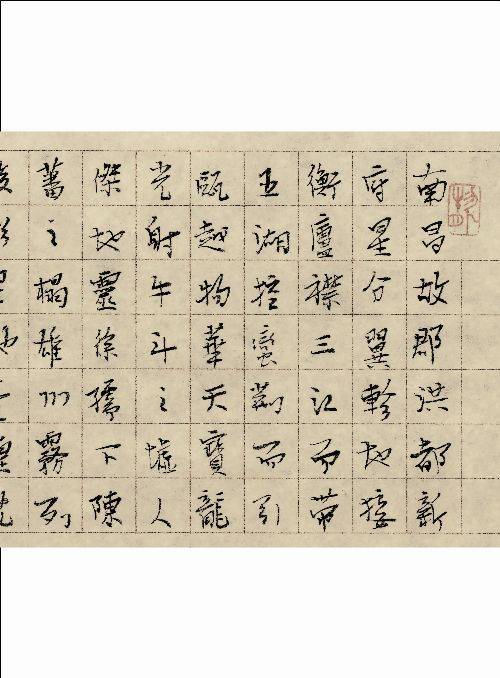 南昌故郡洪都新
府星分翼軫地接
衡廬襟三江而帶
五湖控蠻荊而引
甌越物華天寶龍
光射牛斗之墟人
傑地靈徐孺下陳
蕃之榻雄州霧列